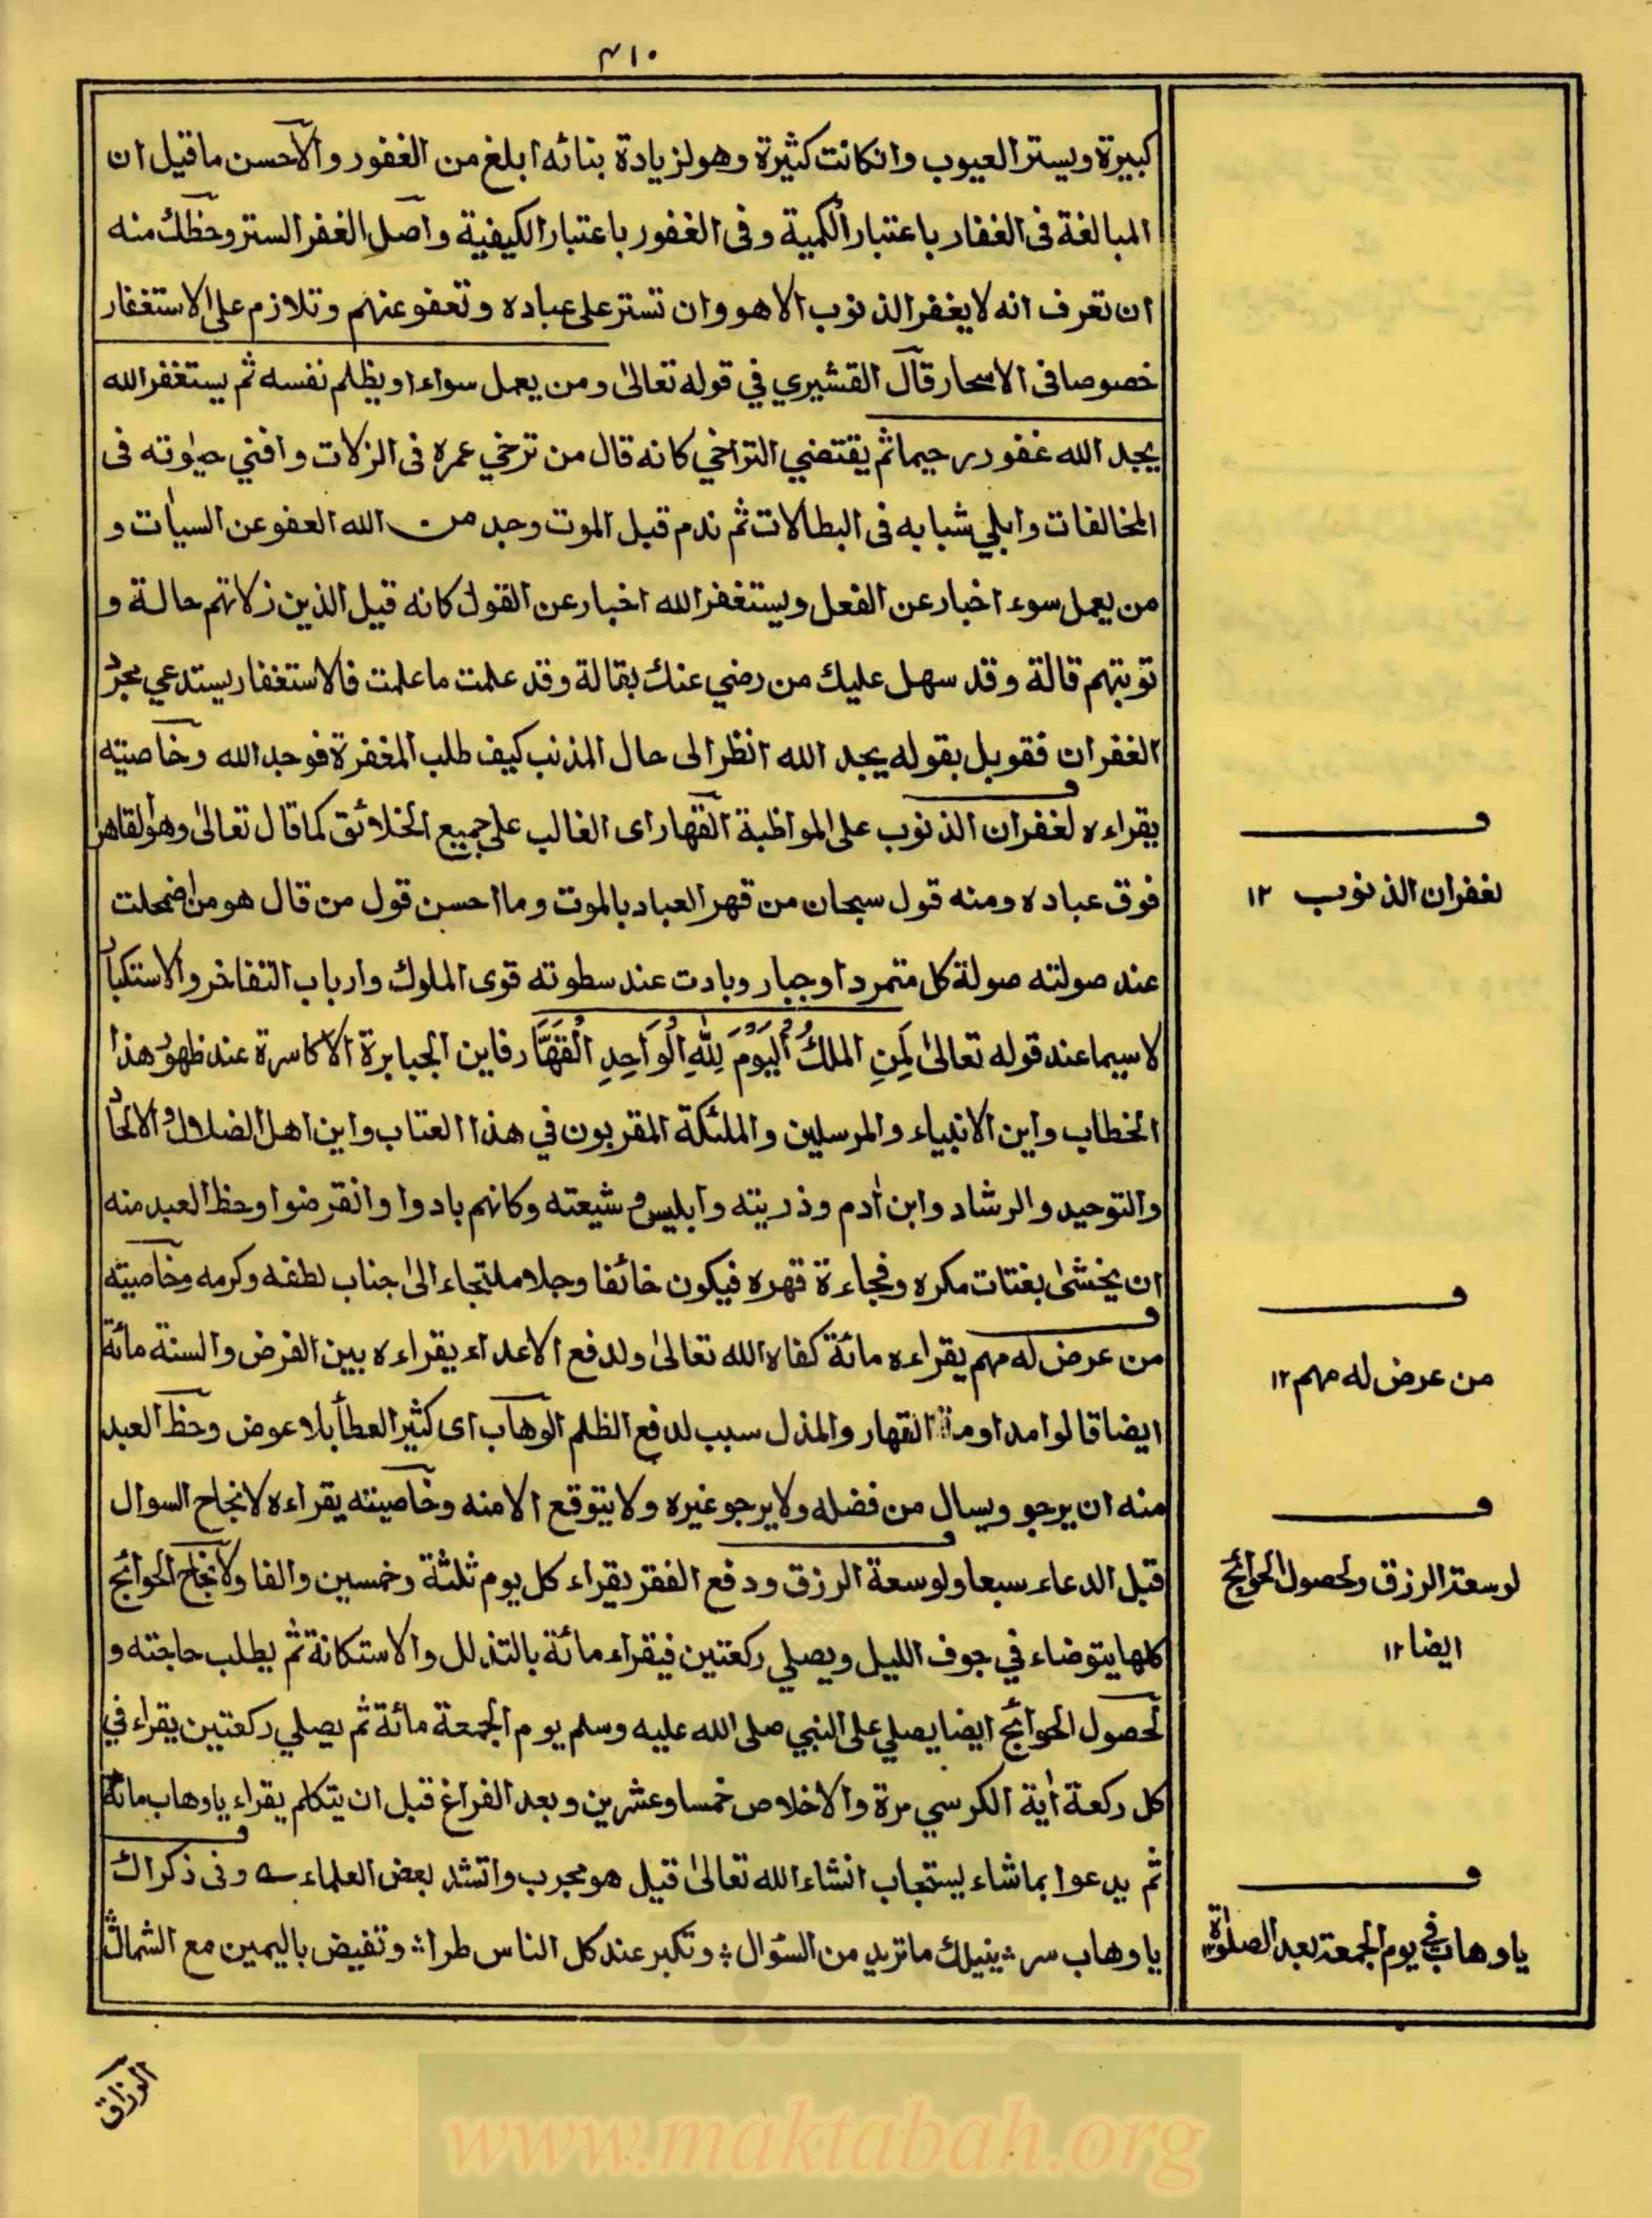 ٣١٠
كبيرة ويستر العيوب وانكانت كثيرة وهو لزيادة بنائه ابلغ من الغفور والاحسن ما قيل ان
المبالغة فى الغفار باعتبار الكمية وفى الغفور باعتبار الكيفية واصل الغفر الستر وحظك منه
ان تعرف انه لا يغفر الذنوب الا هو وان تستر على عباده وتعفو عنهم وتلازم على الاستغفار
خصوصا فى الاسحار قال القشيري في قوله تعالىٰ ومن يعمل سواءا ويظلم نفسه ثم يستغفر الله
يجد الله غفورر حيما ثم يقتضي التراخي كانه قال من ترخي عمره فى الزلات وافني حيوٰته فى
المخالفات وابلي شبابه فى البطالات ثم ندم قبل الموت وجد من الله العفو عن السيأت و
من يعمل سوء اخبار عن الفعل ويستغفر الله اخبار عن القول كانه قيل الذين زلاتهم حالة و
توبتهم قالة وقد سهل عليك من رضي عنك بقالة وقد علمت ما علمت فالاستغفار يستدعي مجرد
الغفران فقوبل بقوله يجد الله انظر الى حال المذنب كيف طلب المغفرة فوجد الله وخاصيته
يقراءه لغفران الذنوب على المواظبة القهار اى الغالب على جميع الخلائق كما قال تعالىٰ وهو القاهر
فوق عباده ومنه قول سبحان من قهر العباد بالموت وما احسن قول من قال هو من اضمحلت
عند صولته صولة كل متمرد او جبار وبادت عند سطوته قوى الملوك وارباب التفاخر والاستكبار
لا سيما عند قوله تعالىٰ لِمَنِ الملكُ اليَومَ لِلّٰهِ الوَاحِدِ القَهَّار فاين الجبابرة الاكاسرة عند ظهور هذا
الخطاب واين الانبياء والمرسلين والملئكة المقربون في هذا العتاب واين اهل الضلال والالحاد
والتوحيد والرشاد واين اٰدم وذريته وابليس وشيعته وكانهم بادوا وانقرضوا وحظ العبد منه
ان يخشىٰ بغتات مكره وفجاءة قهره فيكون خائفا وجلا ملتجاء الىٰ جناب لطفه وكرمه وخاصيته
من عرض له مهم يقراءه مائة كفاه الله تعالىٰ ولدفع الاعداء يقراءه بين الفرض والسنة مائة
ايضا قالوا مداومة القهار والمذل سبب لدفع الظلم الوهاب اى كثير العطأ بلا عوض وحظ العبد
منه ان يرجو ويسال من فضله ولا يرجو غيره ولا يتوقع الا منه وخاصيته يقراءه لانجاح السوال
قبل الدعاء سبعا ولوسعة الرزق ودفع الفقر يقراء كل يوم ثلثة وخمسين والفا ولانجاح الحوائج
كلها يتوضاء في جوف الليل ويصلي ركعتين فيقراء مائة بالتذلل والاستكانة ثم يطلب حاجته و
لحصول الحوائج ايضا يصلي على النبي صلى الله عليه وسلم يوم الجمعة مائة ثم يصلي ركعتين يقراء في
كل ركعة اٰية الكرسي مرة والاخلاص خمسا وعشرين وبعد الفراغ قبل ان يتكلم يقراء ياوهاب مائة
ثم يدعوا بما شاء ليستجاب انشاء الله تعالىٰ قيل هو مجرب وانشد بعض العلماء وفى ذكراك
ياوهاب سر ينيلك ما تريد من السؤال وتكبر عند كل الناس طرا وتفيض باليمين مع الشمال
لغفران الذنوب ١٢
من عرض له مهم ١٢
لوسعة الرزق ولحصول الحوائج
ايضا ١٢
ياوهاب في يوم الجمعة بعد الصلوٰة ١٢
الرزاق
www.maktabah.org